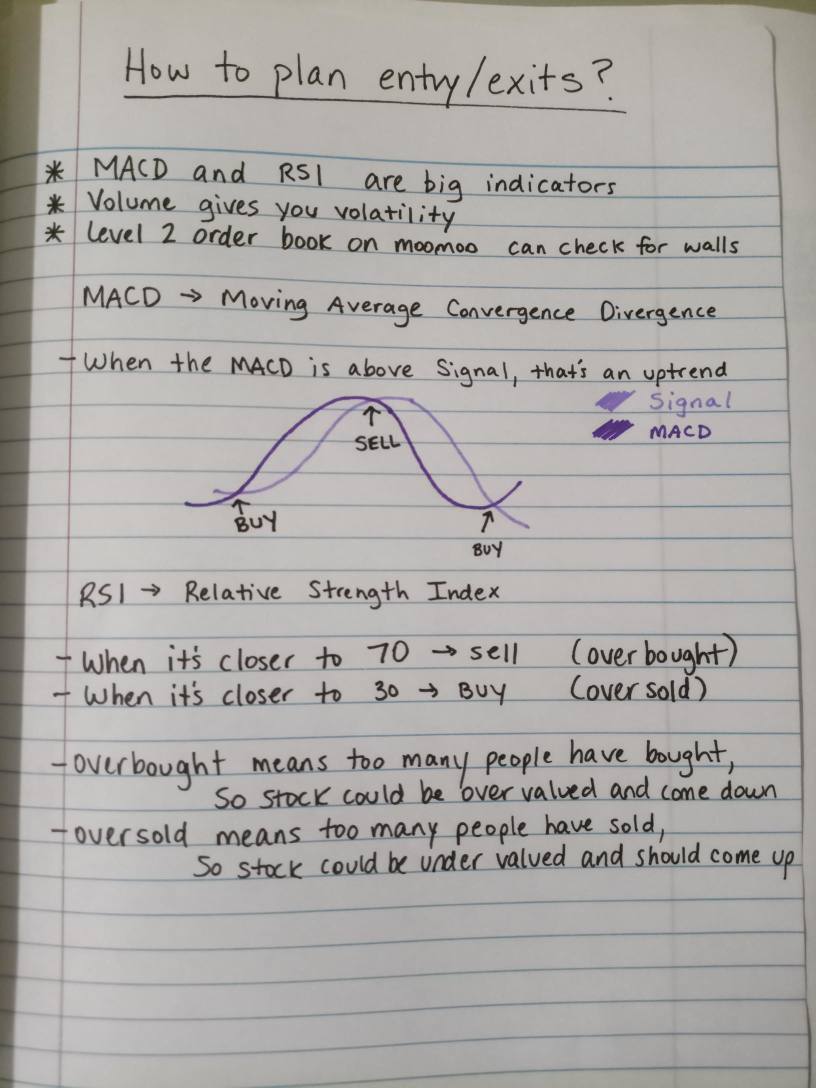 How to plan entry/exits?
* MACD and RSI are big indicators
* Volume gives you volatility
* Level 2 order book on moomoo can check for walls
MACD → Moving Average Convergence Divergence
- When the MACD is above Signal, that's an uptrend
Signal
MACD
SELL
BUY
BUY
RSI → Relative Strength Index
- When it's closer to 70 → sell (overbought)
- When it's closer to 30 → BUY (oversold)
- overbought means too many people have bought,
So stock could be over valued and come down
- oversold means too many people have sold,
So stock could be under valued and should come up